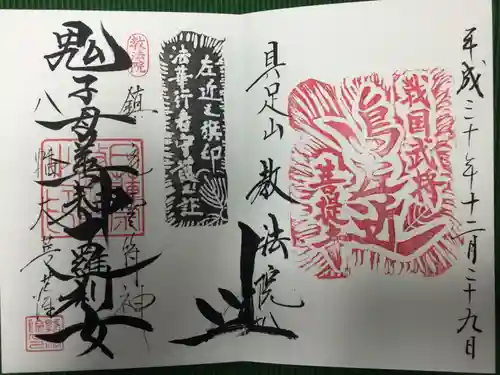 平成三十年十二月二十九日
戦国武将
島左近
菩提寺
具足山 教法院
左近之旗印
法華行者守護之証
教法院
鎮宅霊符神
鬼子母善神十羅刹女
八幡大菩薩